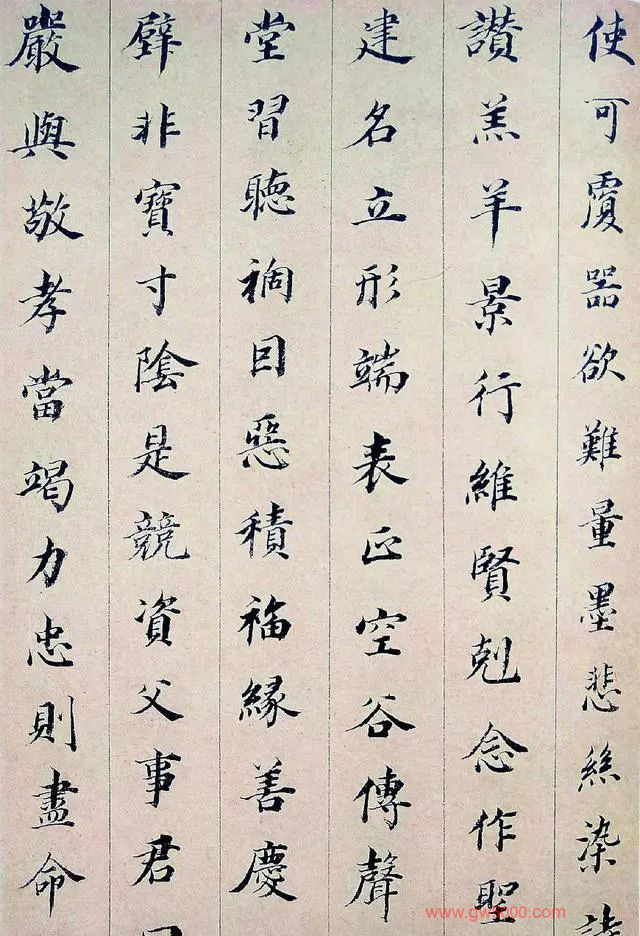 使可覆器欲難量墨悲絲染
讚羔羊景行維賢剋念作聖
建名立形端表正空谷傳聲
堂習聽禍因惡積福緣善慶
璧非寶寸陰是競資父事君
嚴與敬孝當竭力忠則盡命